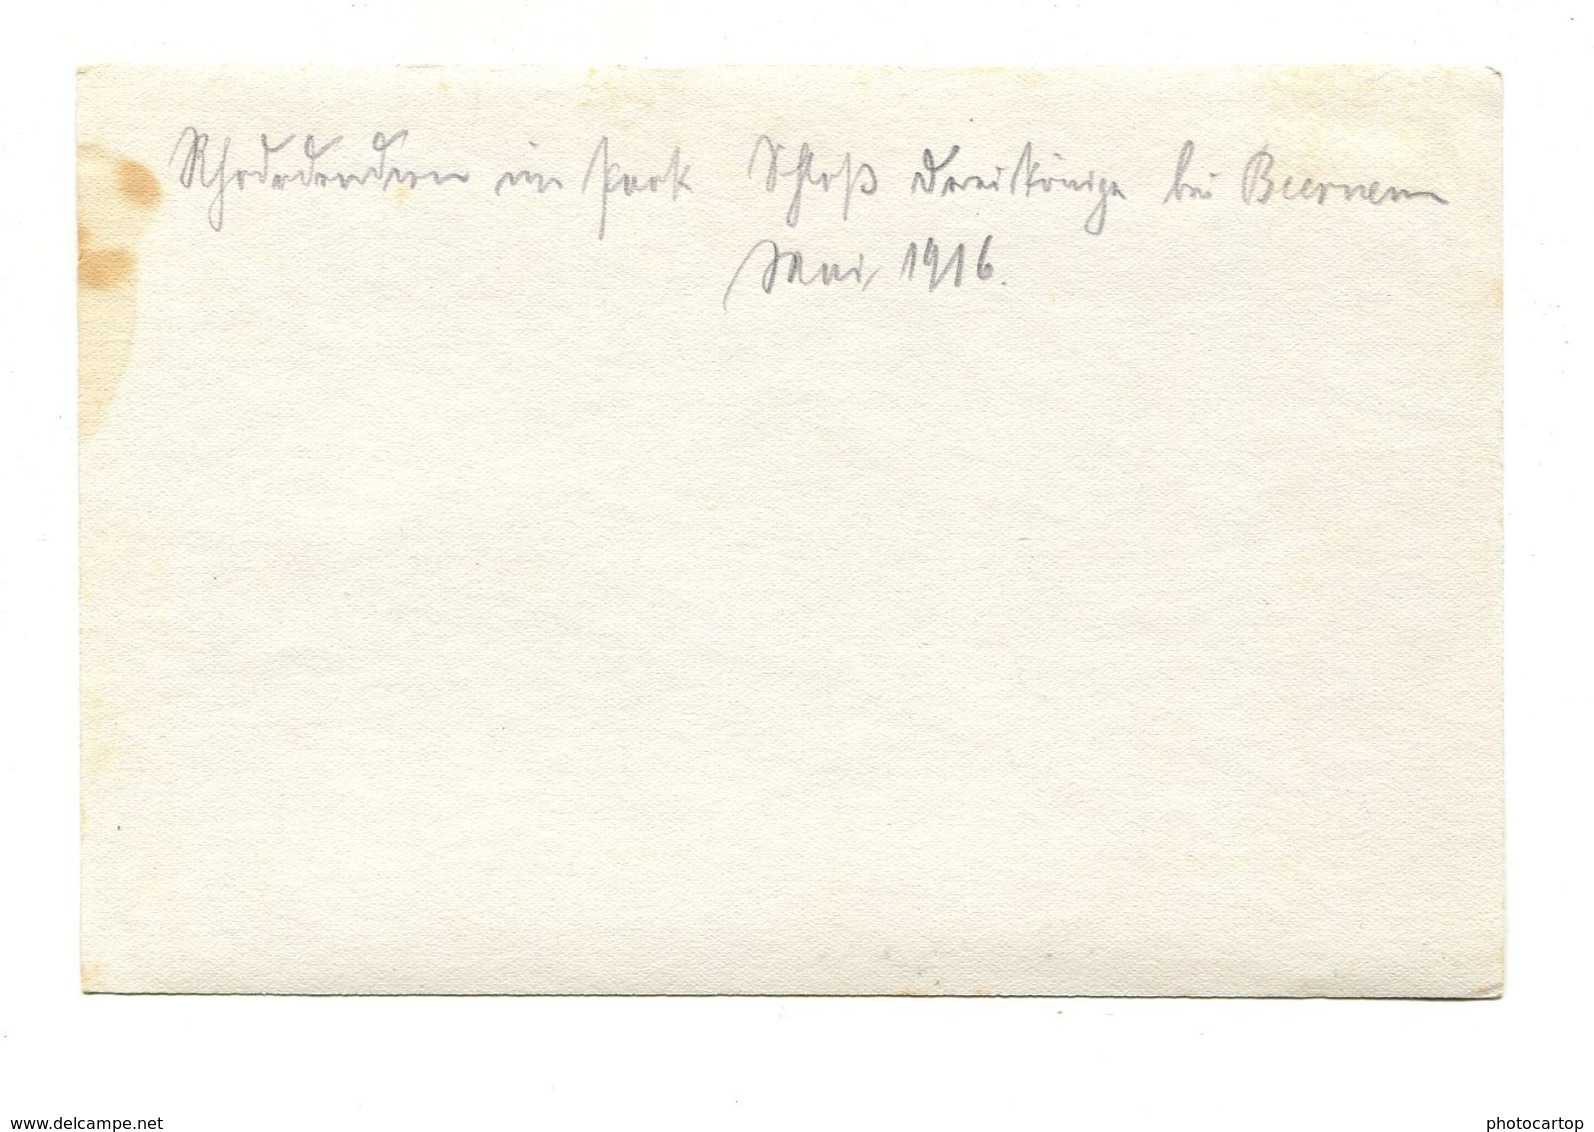 Rhododendren im Park Schloß Dreikönige bei Beernem
Mai 1916.
www.delcampe.net
photocartop